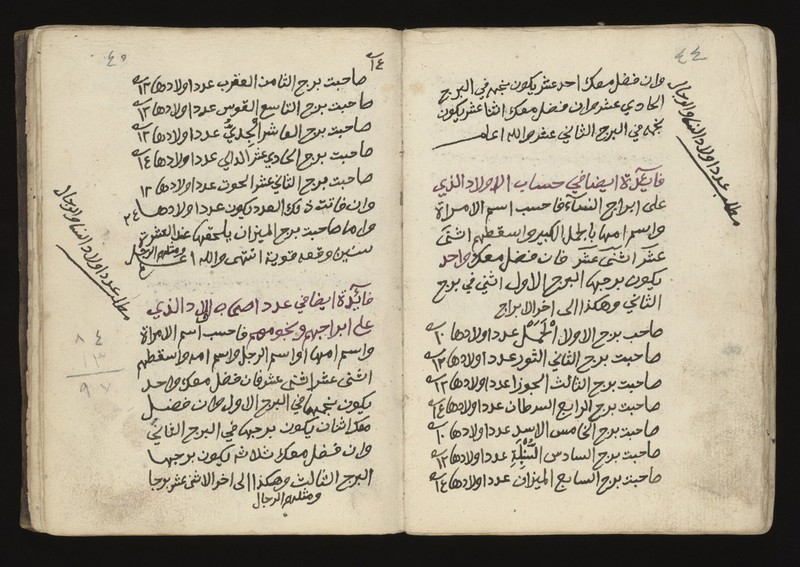 ٤٤
وان فضل معك احد عشر يكون نجمه في البرج
الحادي عشر وان فضل معك اثنا عشر يكون
نجمه في البرج الثاني عشر والله اعلم
مطلب عدد اولاد النسا والرجال
فائدة ايضا في حساب الاولاد الذي
على ابراج النساء فاحسب اسم الامراة
واسم امها بالجمل الكبير واسقطهم اثنى
عشر اثنى عشر فان فضل معك واحد
يكون برجها البرج الاول اثنين في برج
الثاني وهكذا الى اخر الابراج
صاحب برج الاول الحمل عدد اولادها ١٠
صاحبت برج الثاني الثور عدد اولادها ١٣
صاحبت برج الثالث الجوزا عدد اولادها ١٣
صاحبت برج الرابع السرطان عدد اولادها ١٤
صاحبت برج الخامس الاسد عدد اولادها ١٠
صاحبت برج السادس السنبلة عدد اولادها ١٣
صاحبت برج السابع الميزان عدد اولادها ١٤
٤٥
١٤
صاحبت برج الثامن العقرب عدد اولادها ١٣
صاحبت برج التاسع القوس عدد اولادها ١٣
صاحبت برج العاشر الجدي عدد اولادها ١٣
صاحبت برج الحادي عشر الدالي عدد اولادها ١٤
صاحبت برج الثاني عشر الحوت عدد اولادها ١٢
وان فاتت ذلك العدد يكون عدد اولادها ٢٤
واما صاحبت برج الميزان يلحقها عند العشرة
سنين وقعه قوية انتهى والله اعلم
ومثلهم الرجال
مطلب عدد اولاد النسا والرجال
فائدة ايضا في عدد اصحاب الاولاد الذي
على ابراجهم ونجومهم فاحسب اسم الامراة
واسم امها او اسم الرجل واسم امه واسقطهم
اثنى عشر اثنى عشر فان فضل معك واحد
يكون نجمها في البرج الاول وان فضل
معك اثنان يكون برجها في البرج الثاني
وان فضل معك ثلاث يكون برجها
البرج الثالث وهكذا الى اخر الاثنى عشر برجا
ومثلهم الرجال
٨٤
١٣
٩٧